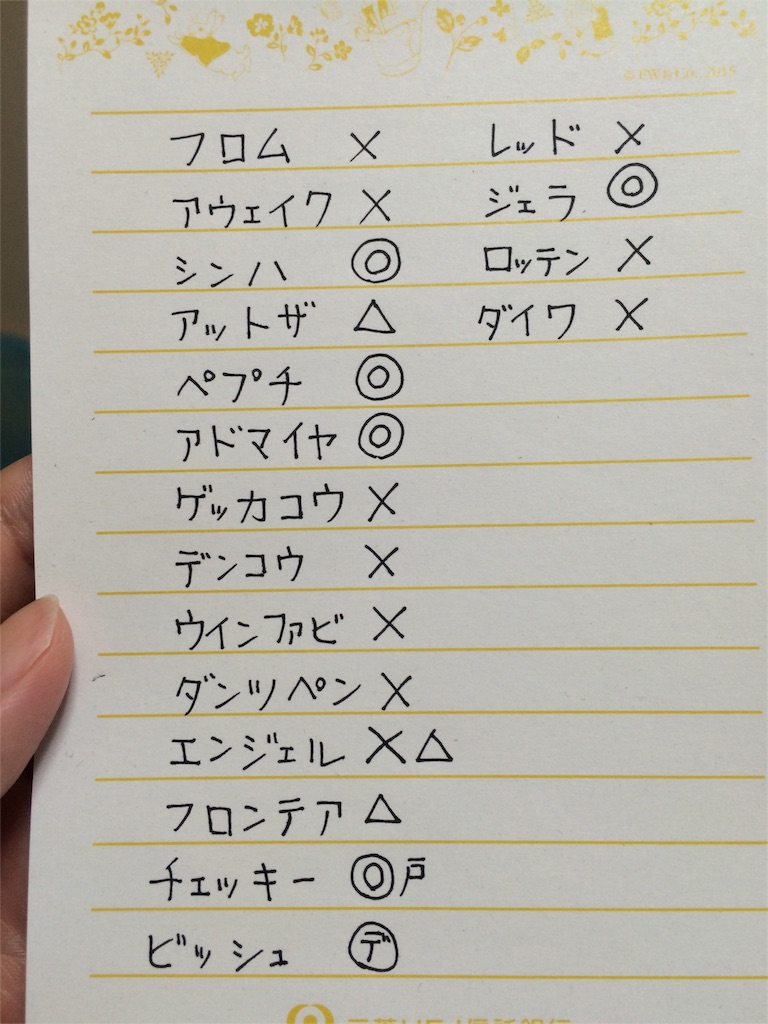 フロム ×
アウェイク ×
シンハ ◎
アットザ △
ペプチ ◎
アドマイヤ ◎
ゲッカコウ ×
デンコウ ×
ウインファビ ×
ダンツペン ×
エンジェル ×△
フロンテア △
チェッキー ◎戸
ビッシュ デ
レッド ×
ジェラ ◎
ロッテン ×
ダイワ ×